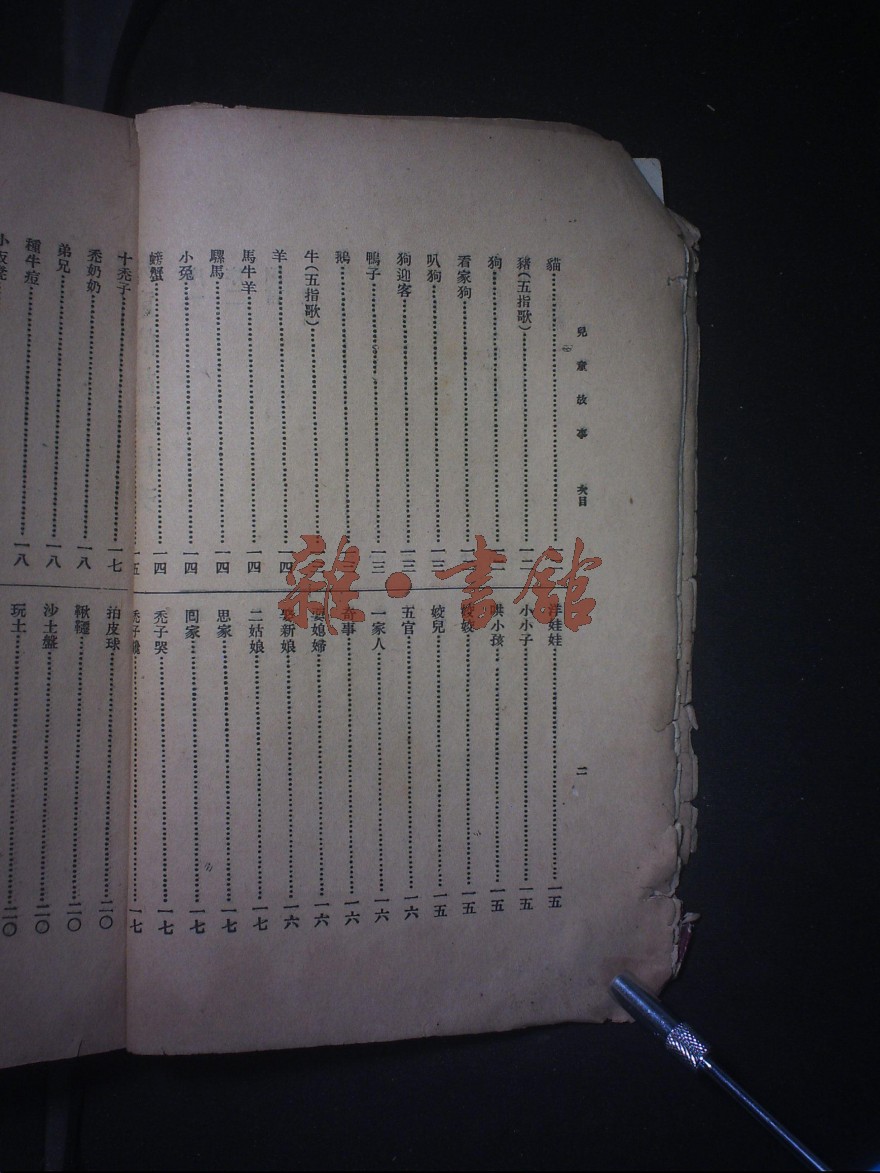 兒童故事 次目 二
貓……
豬(五指歌)……一二
狗……
看家狗……
叭狗……一三
狗迎客……一三
鴨子……一三
鵝……
牛(五指歌)……
羊……一四
馬牛羊……一四
騾馬……一四
小兔……一四
螃蟹……一四
一五
洋娃娃……一五
小小子……一五
哄小孩……一五
姣姣……一五
姣兒……一五
五官……一六
一家人……一六
奇事……一六
娶媳婦……一六
娶新娘……一六
二姑娘……一七
思家……一七
囘家……一七
禿子哭……一七
禿子……一七
十禿子……一七
禿奶奶……一八
弟兄……一八
種牛痘……一八
拍皮球……二〇
鞦韆……二〇
沙土盤……二〇
玩土……二〇
雜·書館